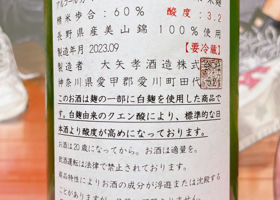 精米歩合：60％ 酸度：3.2
長野県産美山錦 100％使用
製造年月 2023.09 【要冷蔵】
製造者 大矢孝酒造株式
神奈川県愛甲郡愛川町田代
このお酒は麹の一部に白麹を使用した商品で
す。白麹由来のクエン酸により、標準的な日
本酒より酸度が高めになっております。
お酒は20歳になってから。お酒は適量を。
飲酒運転は法律で禁止されております。
商品特性によりお酒の成分が浮遊または沈殿する
ことがありますが